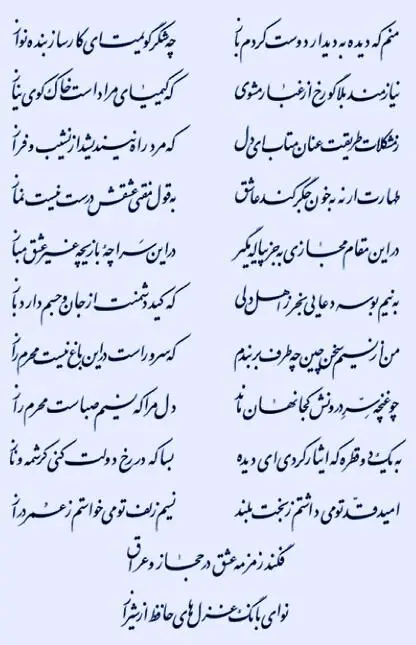 منم که دیده به دیدار دوست کردم باز چه شکر گویمت ای کارساز بنده نواز
نیازمند بلا گو رخ از غبار مشوی که کیمیای مراد است خاک کوی نیاز
ز مشکلات طریقت عنان متاب ای دل که مرد راه نیندیشد از نشیب و فراز
طهارت ار نه به خون جگر کند عاشق به قول مفتی عشقش درست نیست نماز
در این مقام مجازی به جز پیاله مگیر در این سراچهٔ بازیچه غیر عشق مباز
به نیم بوسه دعایی بخر ز اهل دلی که کید دشمنت از جان و جسم دارد باز
من از نسیم سخن چین چه طرف بربندم که سرو راست در این باغ نیست محرم راز
چو غنچه سِرّ درونش کجا نهان ماند دل مرا که نسیم صباست محرم راز
به یک دو قطره که ایثار کردی ای دیده بسا که در رخ دولت کنی کرشمه و ناز
امید قدّ تو می داشتم ز بخت بلند نسیم زلف تو می خواستم ز عمر دراز
فکند زمزمه عشق در حجاز و عراق
نوای بانگ غزل های حافظ از شیراز